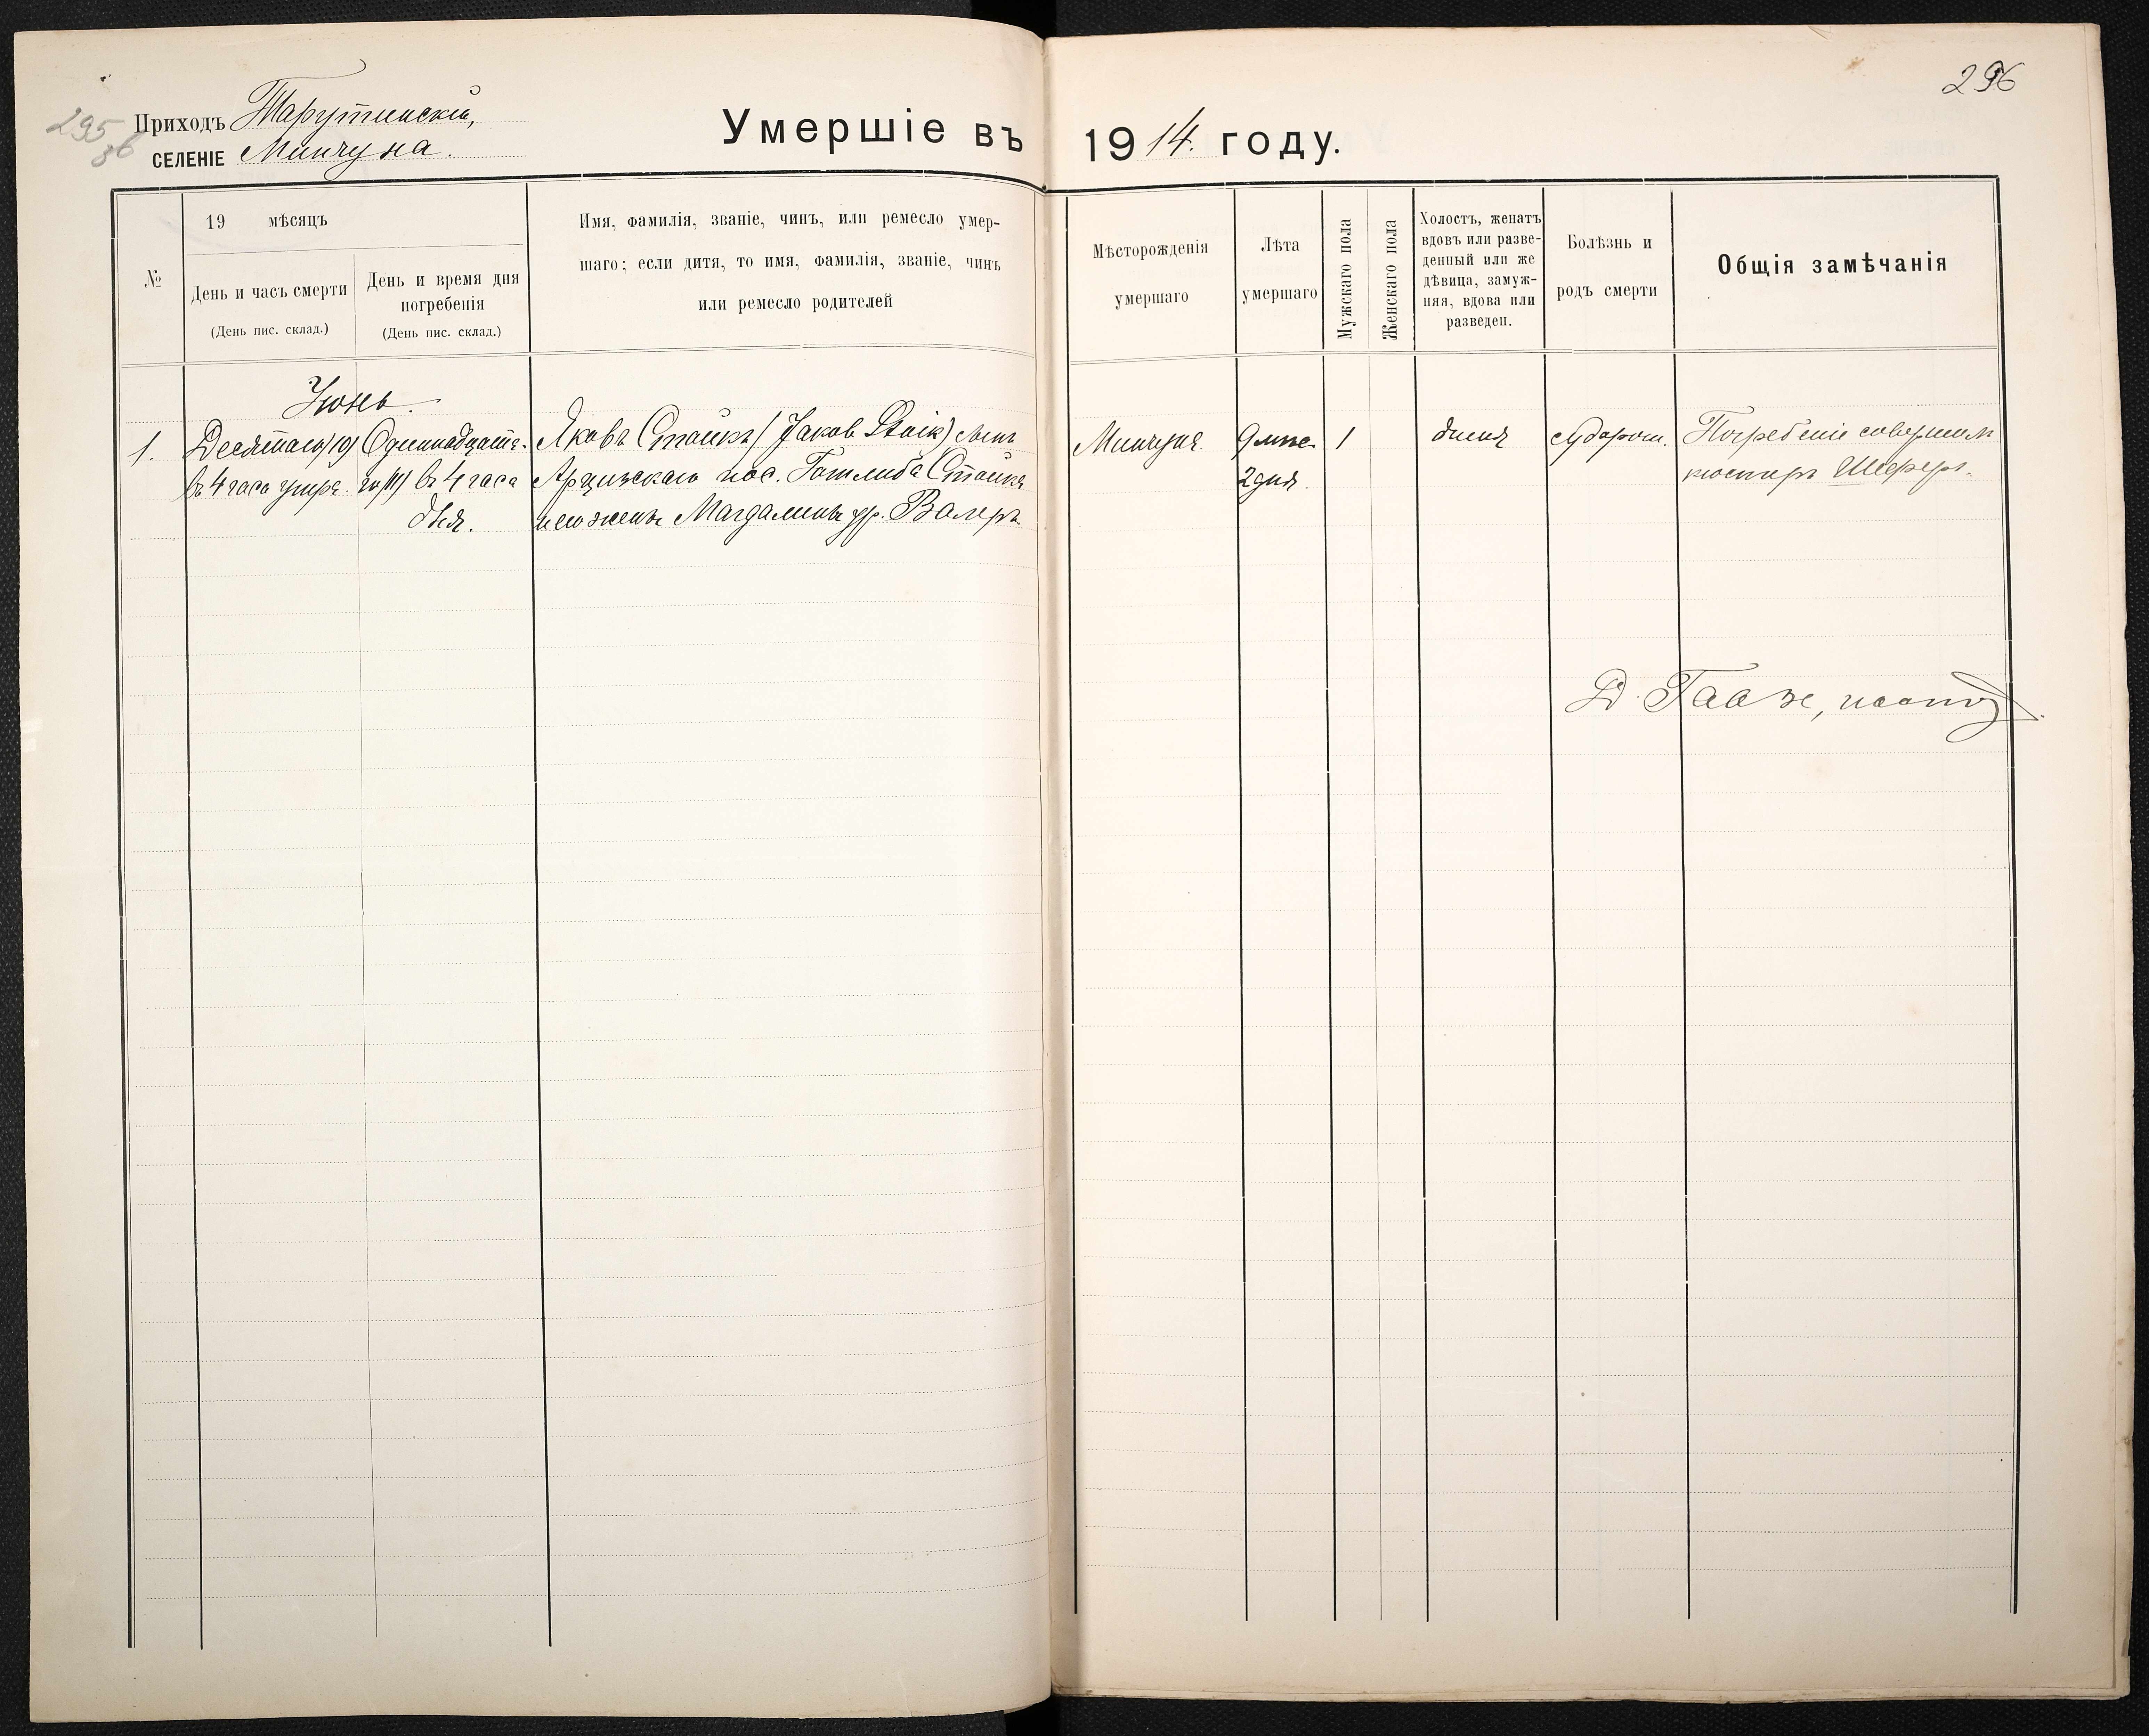 296
295
об
Приходъ Тарутинскій,
СЕЛЕНІЕ Минчуна.
Умершіе въ 1914 году.
№
19 мѣсяцъ
День и часъ смерти
(День пис. склад.)
День и время дня
погребенія
(День пис. склад.)
Имя, фамилія, званіе, чинъ, или ремесло умер-
шаго; если дитя, то имя, фамилія, званіе, чинъ
или ремесло родителей
Мѣсторожденія
умершаго
Лѣта
умершаго
Мужскаго пола
Женскаго пола
Холостъ, женатъ
вдовъ или разве-
денный или же
дѣвица, замуж-
няя, вдова или
разведен.
Болѣзнь и
родъ смерти
Общія замѣчанія
Іюнь.
1.
Десятаго (10)
въ 4 часа утра.
Одиннадцата-
го (11) въ 4 часа
дня.
Яковъ Стайкъ (Jakob Staik) сынъ
Арцизскаго пос. Готлиба Стайка
и его жены Магдалины ур. Валеръ
Минчуна.
9 мѣс.
2 дня.
1
дитя
Судорош.
Погребеніе совершилъ
кюстеръ Шеферъ.
Д. Гаазе, пасторъ